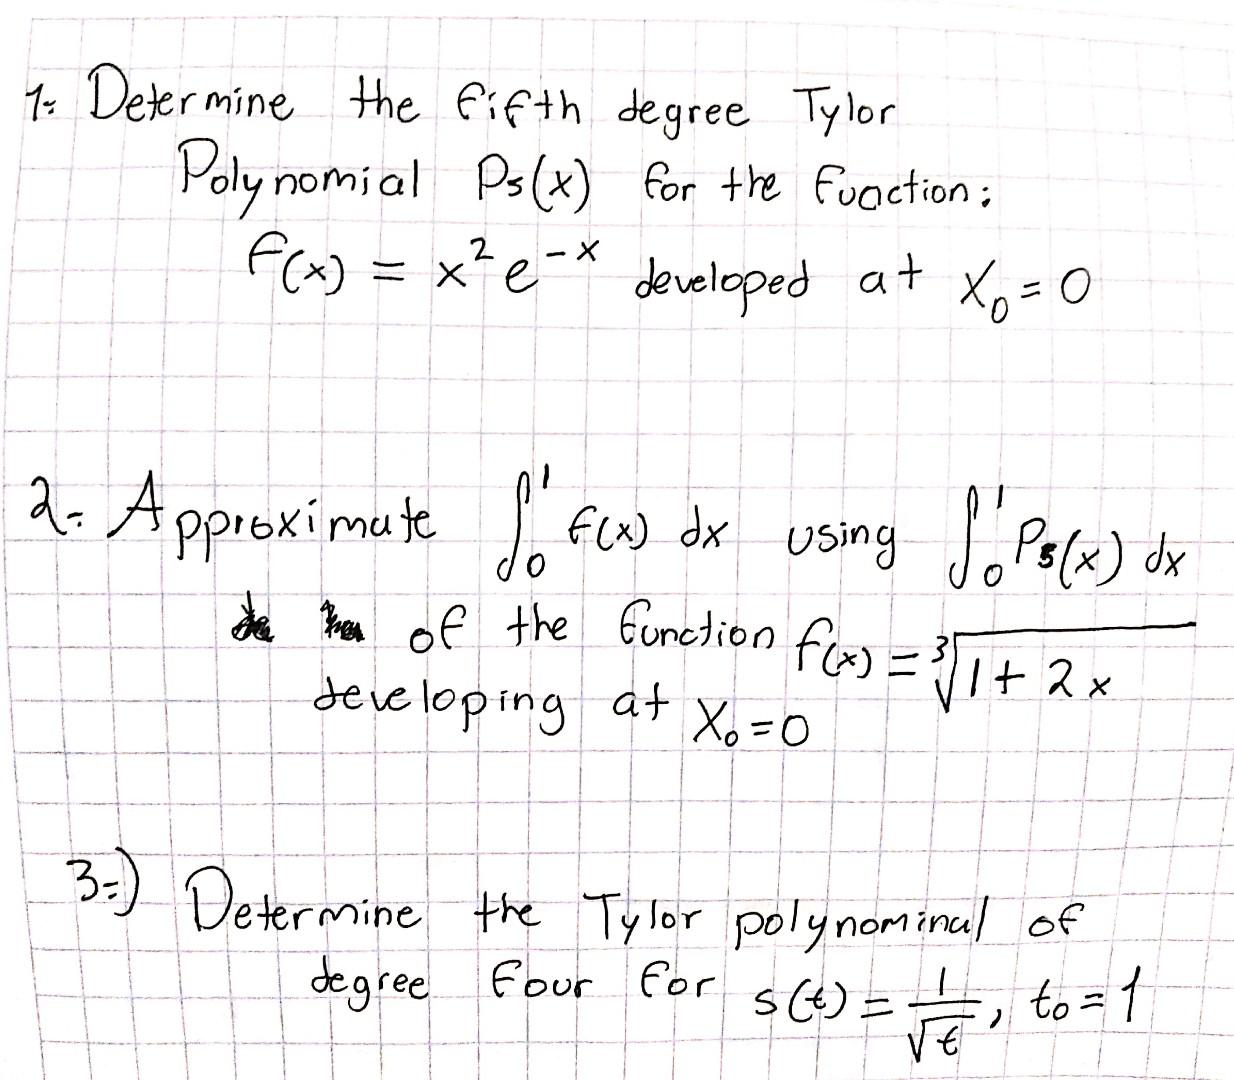 1: Determine the fifth degree Tylor
Polynomial P₅(x) for the fuoction:
f(x) = x² e⁻ˣ developed at X₀ = 0
2- Approximate ∫₀¹ f(x) dx using ∫₀¹ P₅(x) dx
of the function f(x) = ∛(1 + 2x)
developing at X₀ = 0
3-) Determine the Tylor polynominal of
degree four for s(t) = 1/√t, t₀ = 1